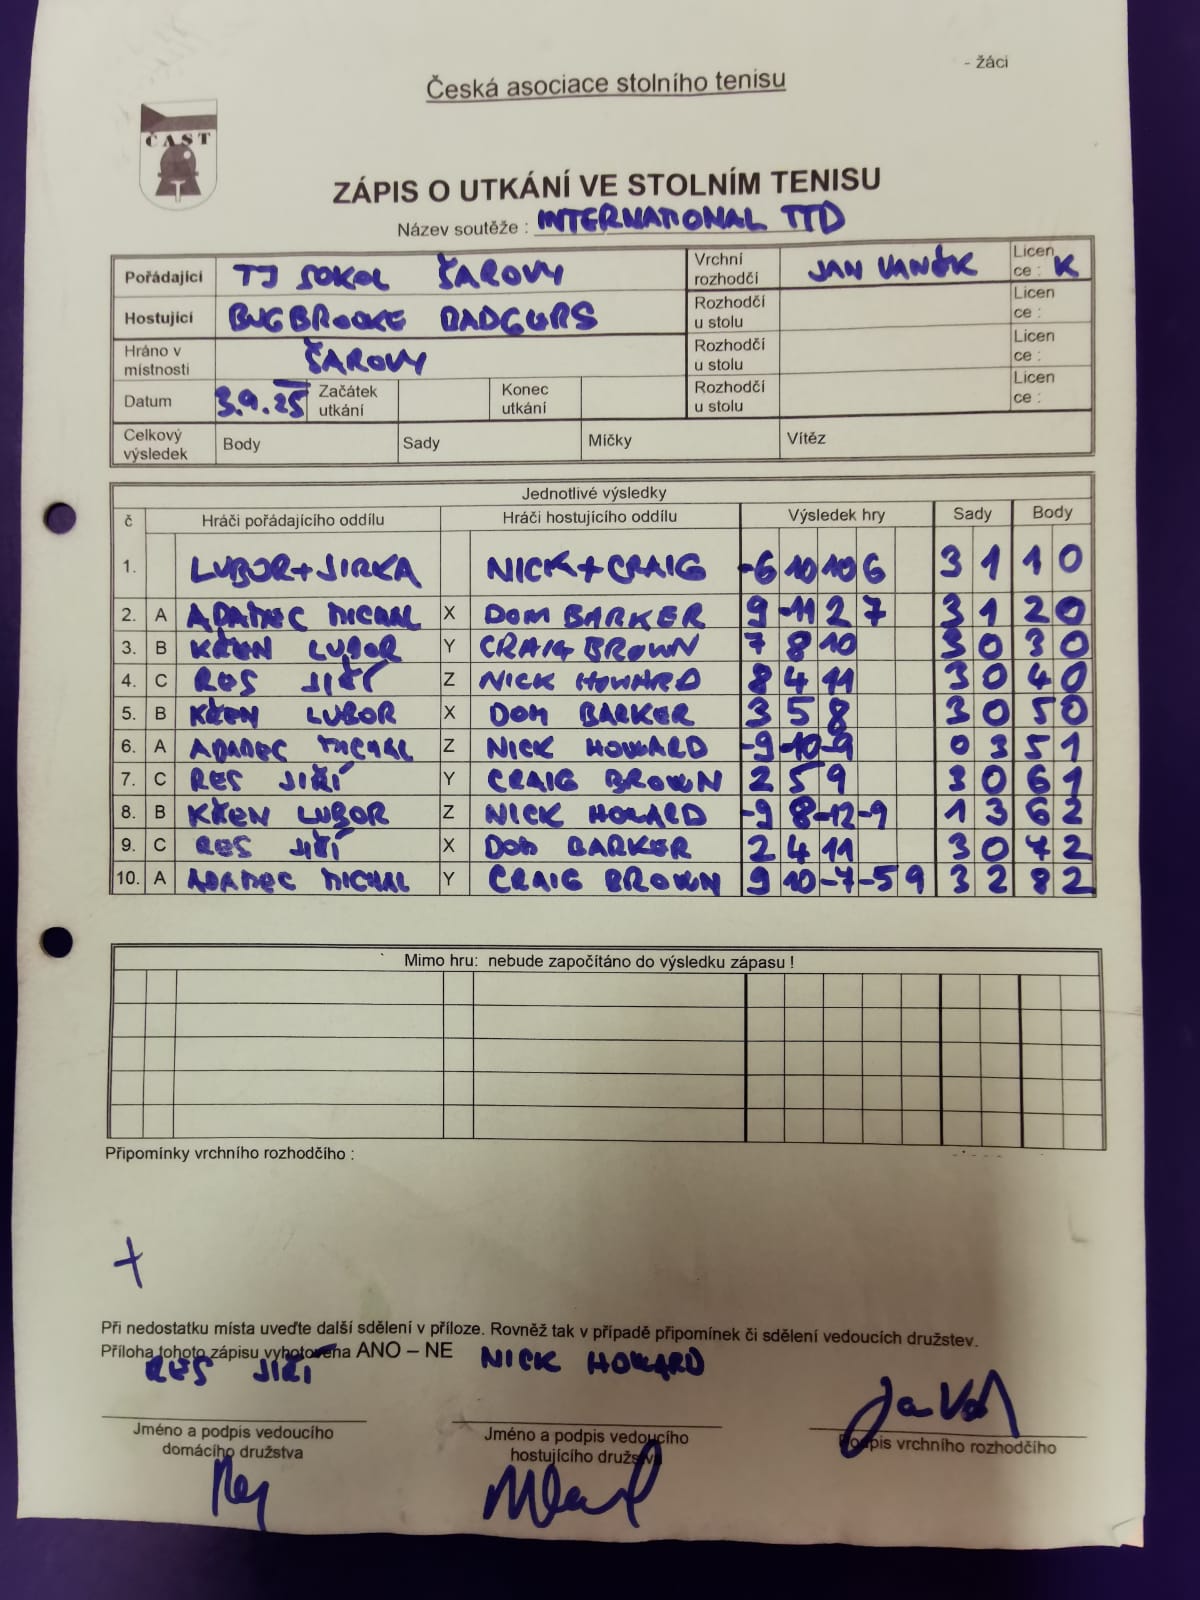 - žáci
Česká asociace stolního tenisu
ČAST
ZÁPIS O UTKÁNÍ VE STOLNÍM TENISU
Název soutěže : INTERNATIONAL TTD
Pořádající TJ SOKOL ŽAROVY Vrchní rozhodčí JAN VANĚK Licen ce : K
Hostující BUGBROOKE BADGERS Rozhodčí u stolu Licen ce :
Hráno v místnosti ŽAROVY Rozhodčí u stolu Licen ce :
Datum 3.9.25 Začátek utkání Konec utkání Rozhodčí u stolu Licen ce :
Celkový výsledek Body Sady Míčky Vítěz
Jednotlivé výsledky
č Hráči pořádajícího oddílu Hráči hostujícího oddílu Výsledek hry Sady Body
1. LUBOR+JIRKA NICK+CRAIG -6 10 10 6 3 1 1 0
2. A ADAMEC MICHAL X DOM BARKER 9 -11 2 7 3 1 2 0
3. B KŘEN LUBOR Y CRAIG BROWN 7 8 10 3 0 3 0
4. C RES JIŘÍ Z NICK HOWARD 8 4 11 3 0 4 0
5. B KŘEN LUBOR X DOM BARKER 3 5 8 3 0 5 0
6. A ADAMEC MICHAL Z NICK HOWARD -9 -10 -9 0 3 5 1
7. C RES JIŘÍ Y CRAIG BROWN 2 5 9 3 0 6 1
8. B KŘEN LUBOR Z NICK HOWARD -9 8 -12 -9 1 3 6 2
9. C RES JIŘÍ X DOM BARKER 2 4 11 3 0 7 2
10. A ADAMEC MICHAL Y CRAIG BROWN 9 10 -7 -5 9 3 2 8 2
Mimo hru: nebude započítáno do výsledku zápasu !
Připomínky vrchního rozhodčího :
+
Při nedostatku místa uveďte další sdělení v příloze. Rovněž tak v případě připomínek či sdělení vedoucích družstev.
Příloha tohoto zápisu vyhotovena ANO – NE
RES JIŘÍ NICK HOWARD
Jméno a podpis vedoucího domácího družstva
Jméno a podpis vedoucího hostujícího družstva
Podpis vrchního rozhodčího